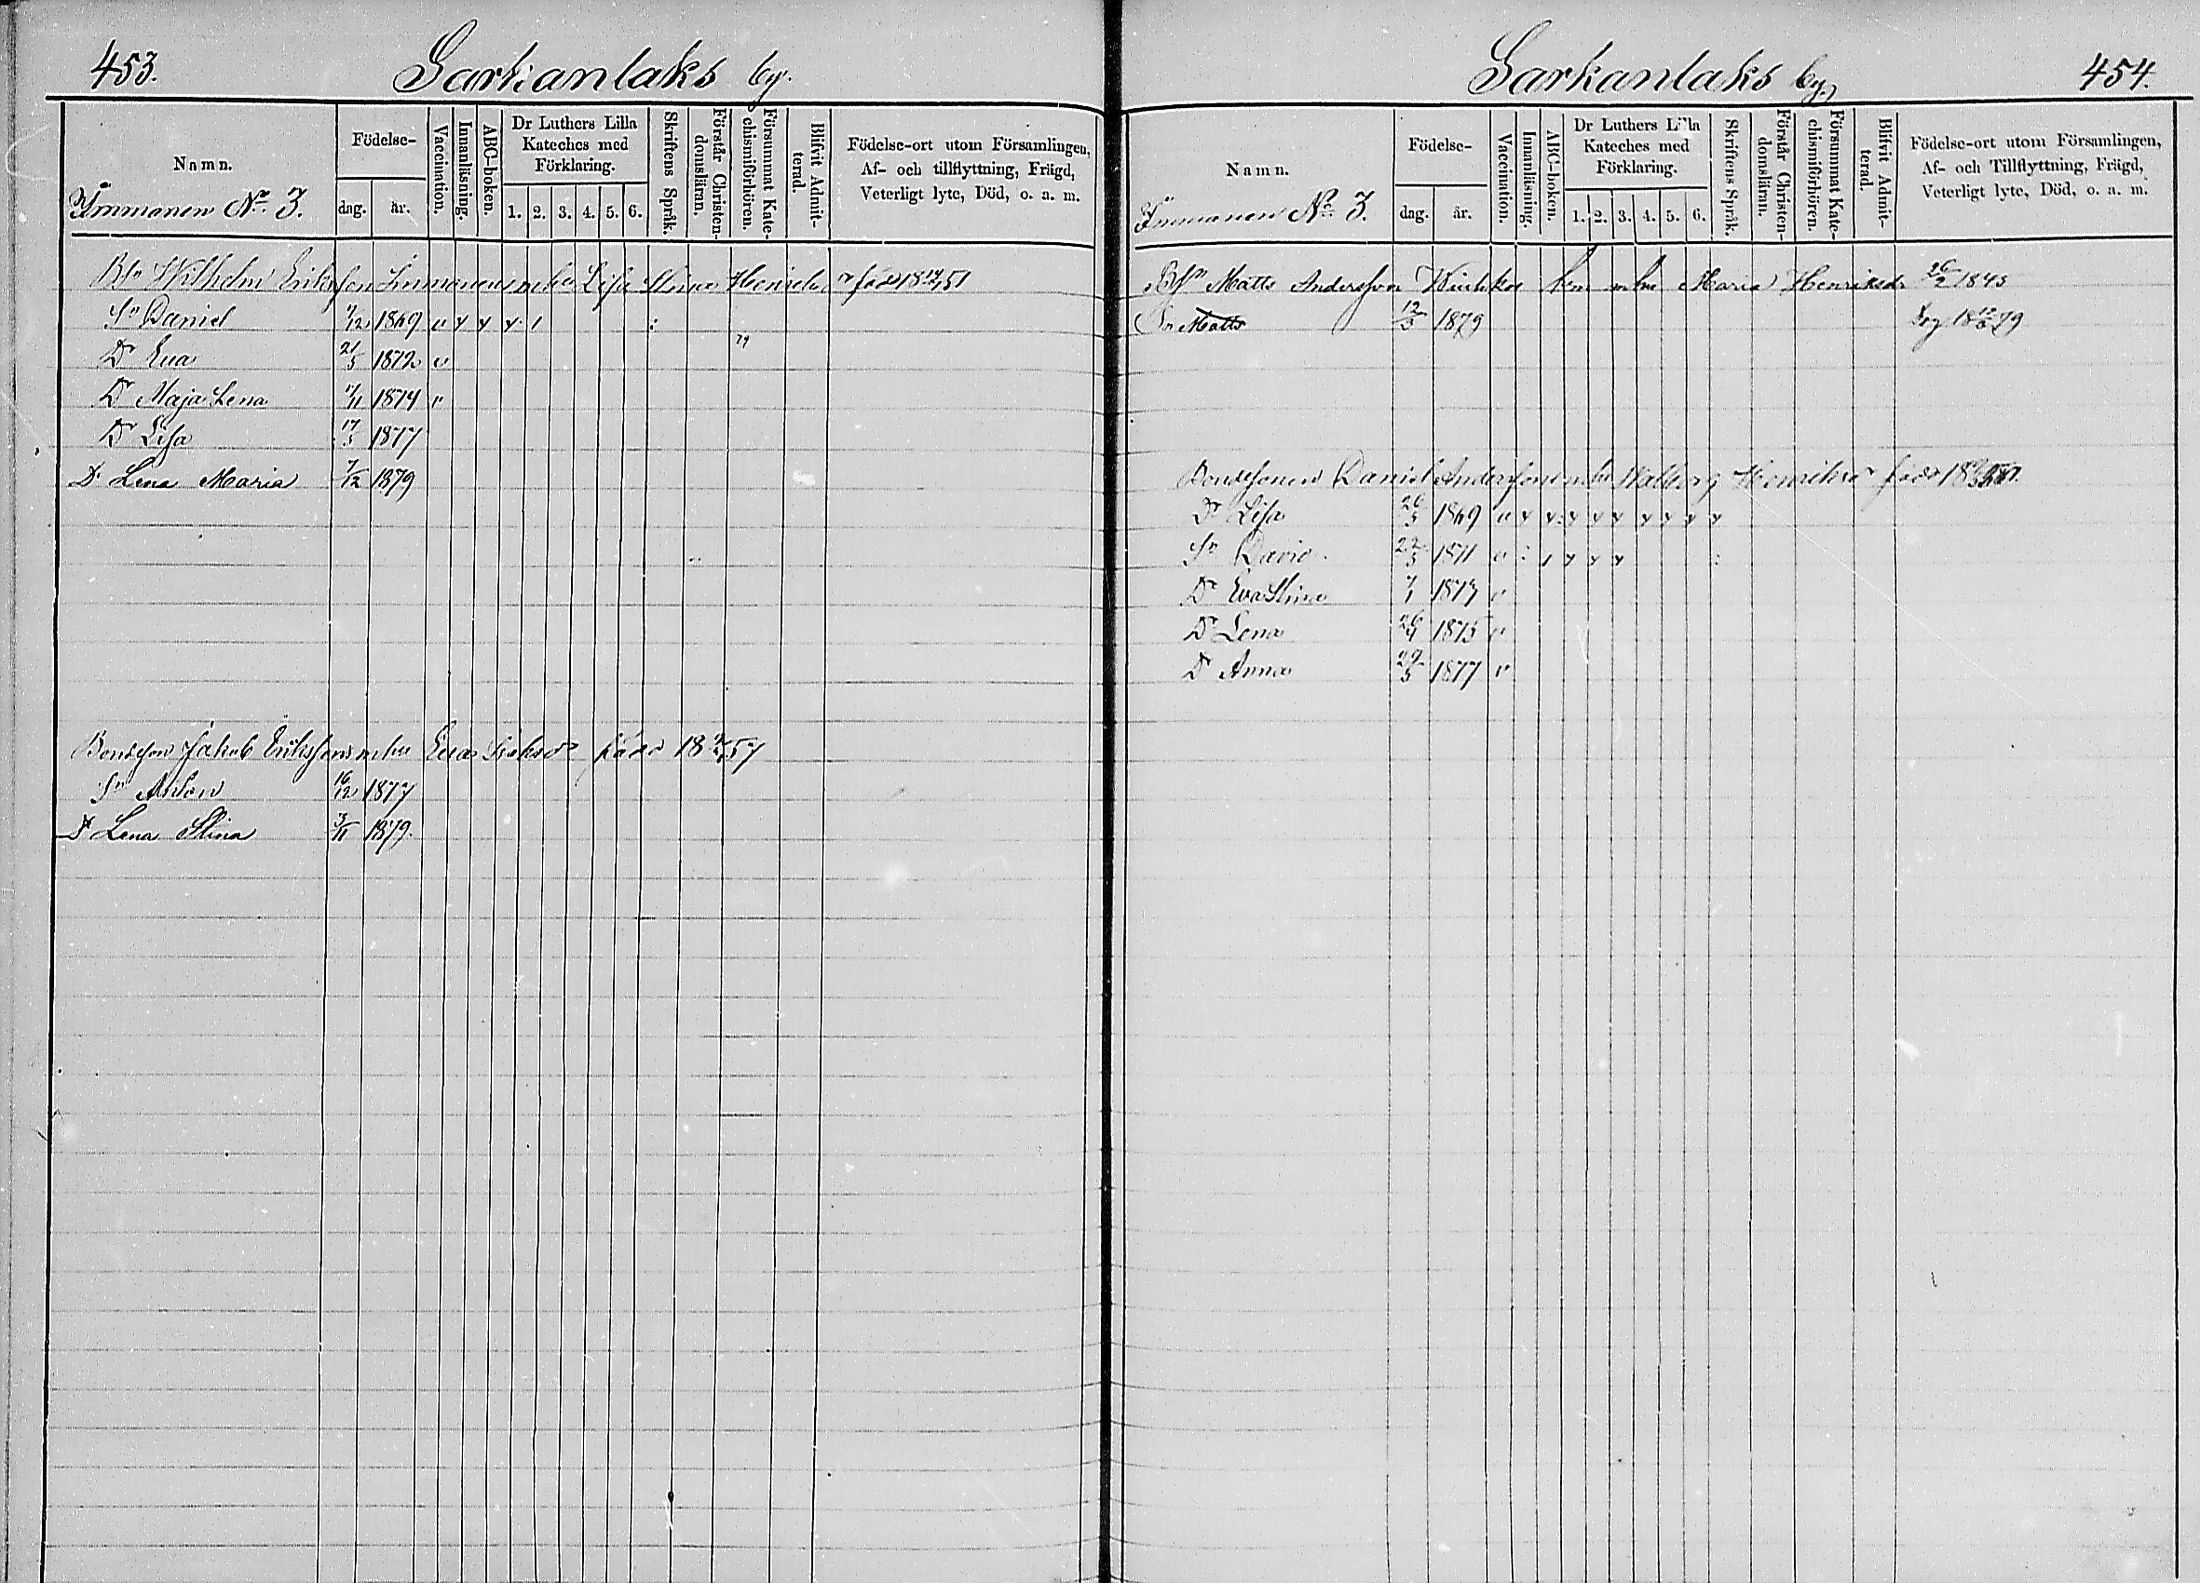 453.
Sarkanlaks by.
Namn.
Födelse-
dag. år.
Vaccination.
Innanläsning.
ABC-boken.
Dr Luthers Lilla Kateches med Förklaring.
1. 2. 3. 4. 5. 6.
Skriftens Språk.
Förstår Christendomsläran.
Försummat Katechismiförhören.
Blifvit Admitterad.
Födelse-ort utom Församlingen, Af- och tillflyttning, Frägd, Veterligt lyte, Död, o. a. m.
Immonen No 3.
Bn Wilhelm Eriksson Immonen m. hu Lisa Stina Henriksdr född 18 51
Sn Daniel 1869 v
79
Dr Eva 21/5 1872 v
Dr Maja Lena 1874 v
Dr Lisa 17/5 1877
Dr Lena Maria 7/12 1879
Bondeson Jakob Erikssons m. hu Eva född 18 57
Sn Anton 16/12 1877
Dr Lena Stina 3/11 1879.
Sarkanlaks by.
454.
Namn.
Födelse-
dag. år.
Vaccination.
Innanläsning.
ABC-boken.
Dr Luthers Lilla Kateches med Förklaring.
1. 2. 3. 4. 5. 6.
Skriftens Språk.
Förstår Christendomsläran.
Försummat Katechismiförhören.
Blifvit Admitterad.
Födelse-ort utom Församlingen, Af- och Tillflyttning, Frägd, Veterligt lyte, Död, o. a. m.
Immonen No 3.
Matts Andersson m hu Maria Henriksdr 26/2 1843
Sn Matts 12/3 1879 79
Bondesonen Daniel Anderssons m. hu Walborg Henriksdr född 18
Dr Lisa 26/3 1869 v
Sn David 22/3 1871 v
Dr Eva Stina 1873 v
Dr Lena 26/4 1875 v
Dr Anna 29/3 1877 v